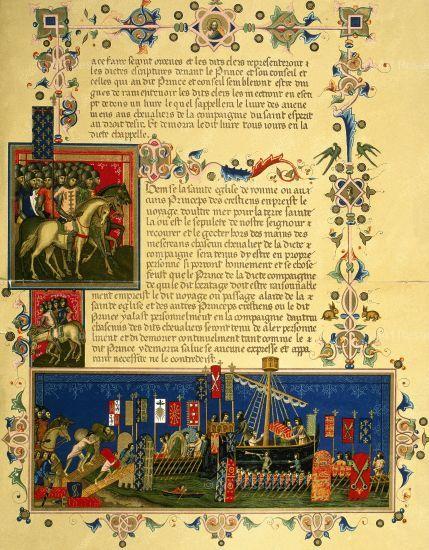 a ce faire seront ordenes et les dits clers representeront
les dictes escriptures devant le Prince et son conseil et
celles qui au dit Prince et conseil sembleront estre dig
nes de ramentevoir les dits clers les mectront en escri
pt dedens un livre le quel s'appellera le livre des avene
mens aus chevaliers de la compaignie du saint esperit
au droit desir. Et demorra le dit livre tous jours en la
dicte chappelle.
Item se la sainte eglise de romme ou au
cuns Princeps des crestiens empreist le
voyage d'outre mer pour la terre sainte
la ou est le sepulcre de nostre seignour
recouvrer et le gecter hors des mains des
mescreans chascun chevalier de la dicte
compaignie sera tenus d'y estre en propre
personne si porront bonnement et se chose
feust que le Prince de la dicte compaignie
de qui le dit heritage doit estre raisonnable
ment empreist le dit voyage ou passage alaide de la
sainte eglise et des autres Princeps crestiens ou le dit
Prince y alast personnelment en la compaignie d'autrui
chascuns des dits chevaliers seront tenus de aler personne
lment et di demorer continuelment tant comme le
dit Prince y demorra salve se aucune expresse et appa
rant necessite ne le contredeist.